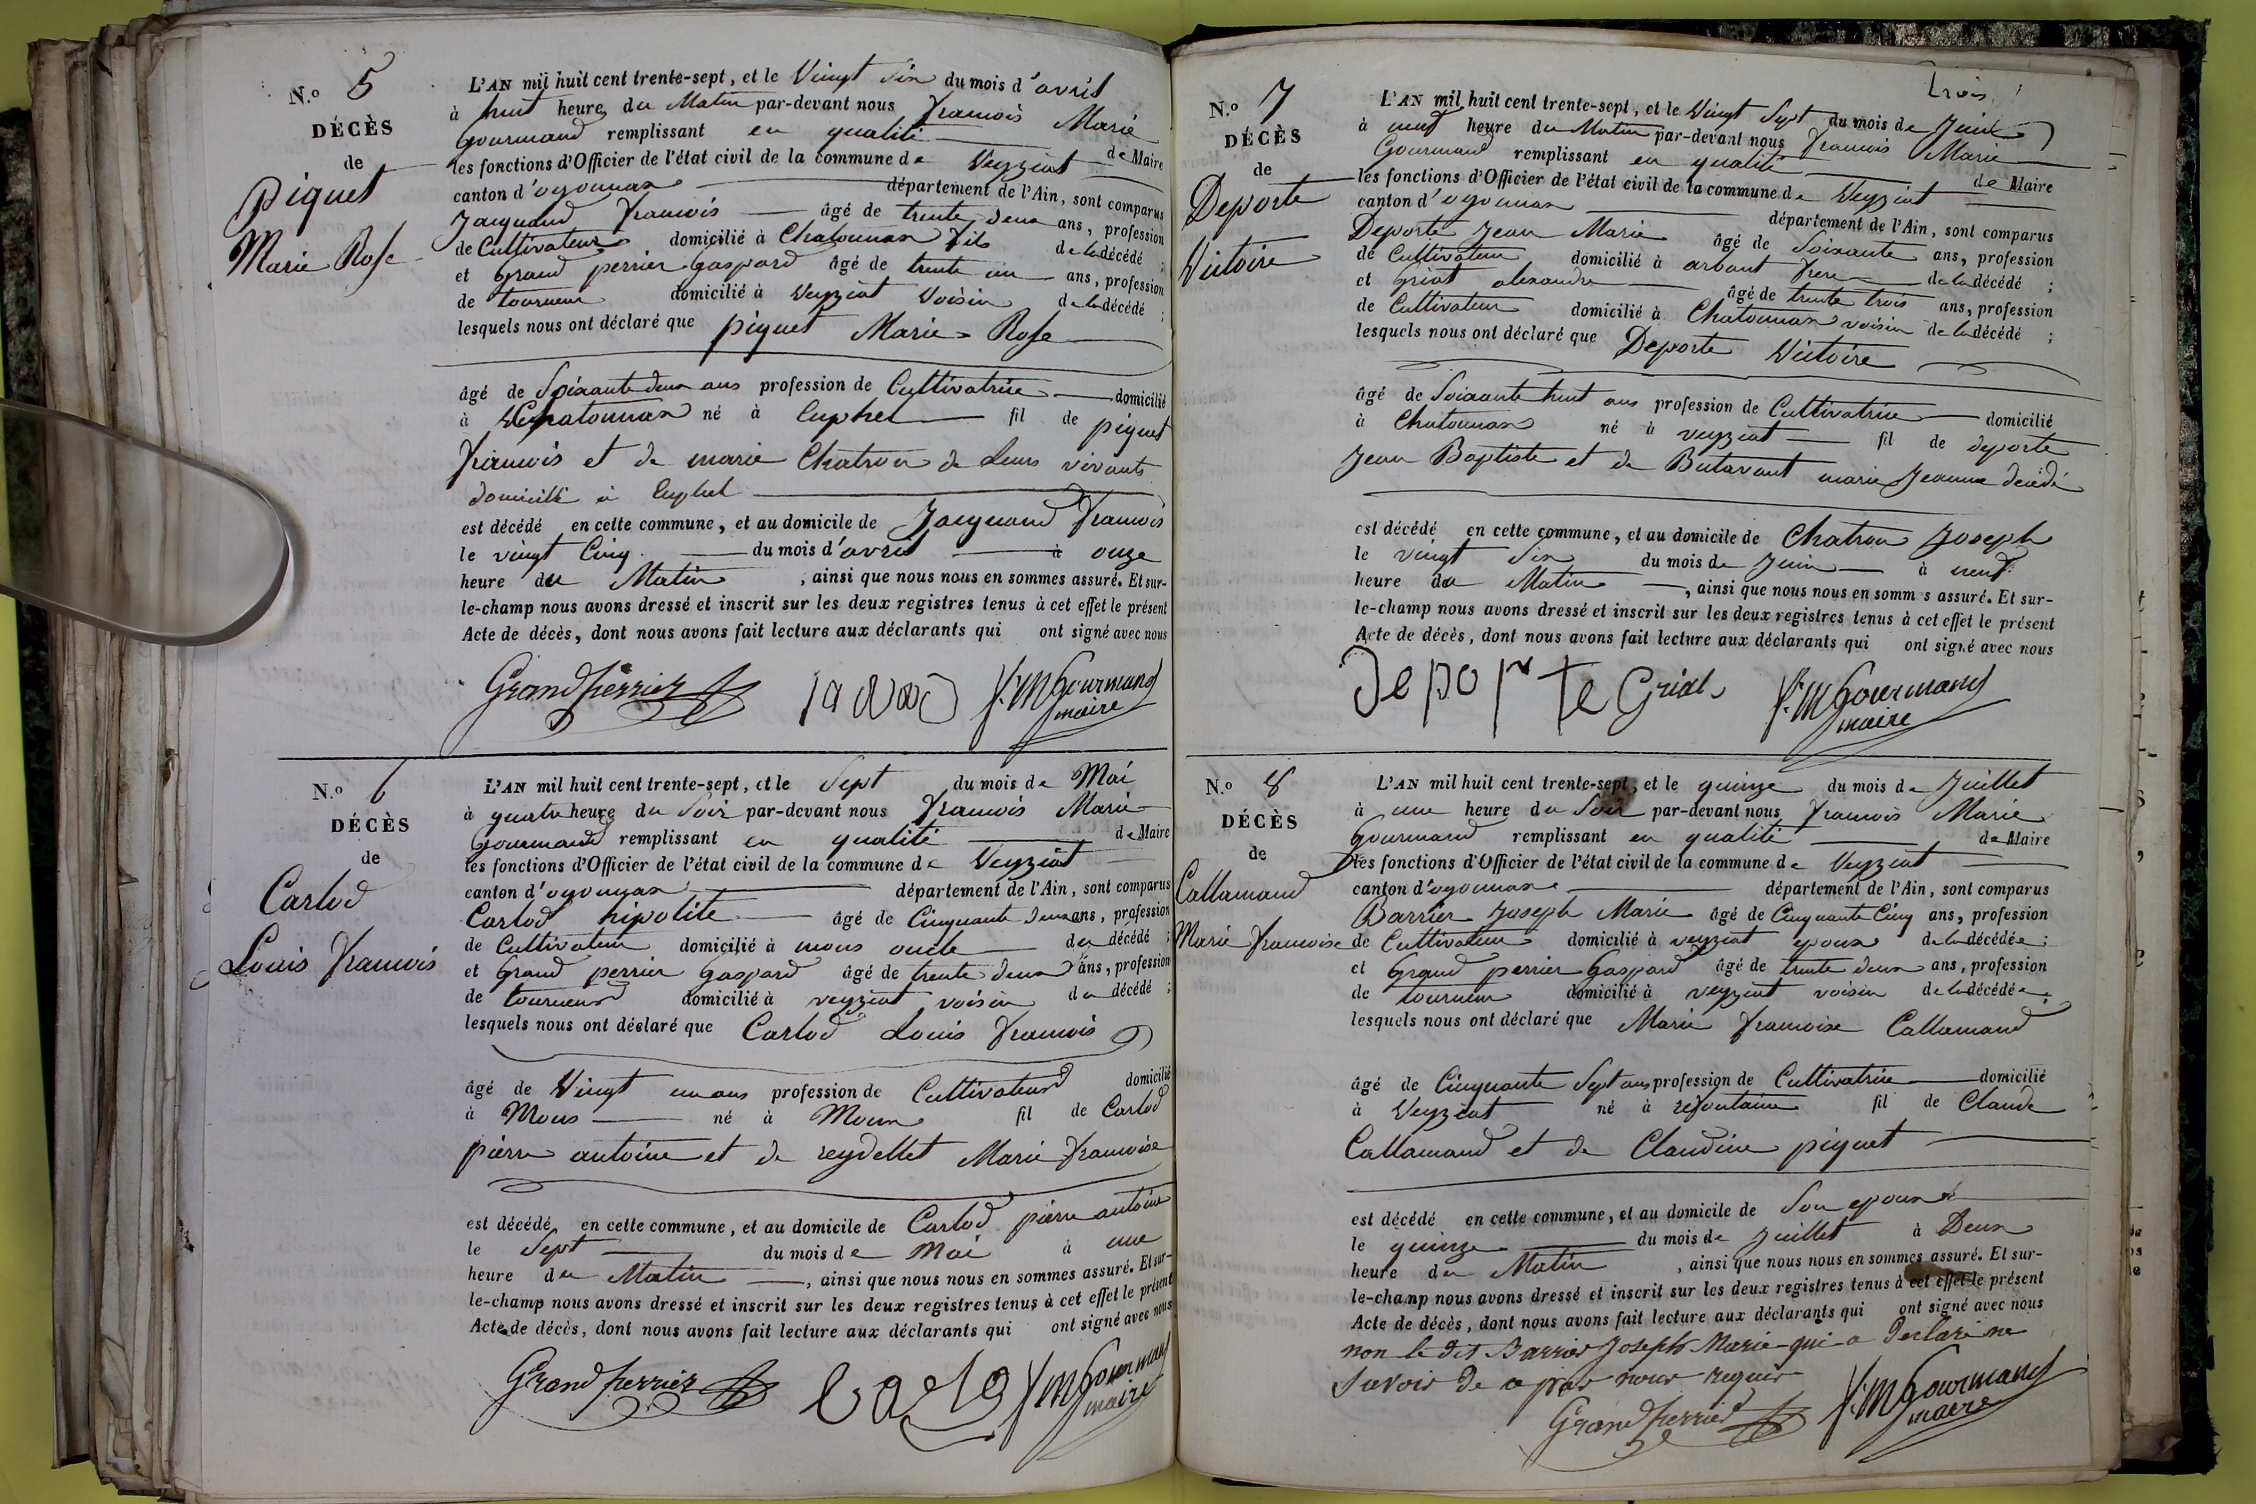 N.o 5
DÉCÈS
de
piquet
Marie Rose
L'AN mil huit cent trente-sept, et le Vingt Six du mois d'avril
à huit heures du Matin par-devant nous francois Marie
Gourmand remplissant en qualité de Maire
les fonctions d'Officier de l'état civil de la commune de Veyziat
canton d'oyonnax département de l'Ain, sont comparus
Jacquand francois âgé de trente deux ans, profession
de Cultivateur domicilié à Chatonnax fils de la décédé ;
et Grand perrier Gaspard âgé de trente un ans, profession
de tourneur domicilié à Veyziat Voisin de la décédé ;
lesquels nous ont déclaré que piquet Marie Rose
âgé de Soixante deux ans profession de Cultivatrice domicilié
à Chatonnax né à Euphel fil de piquet
francois et de marie Chatron de Leurs vivants
domicilié à Euphel
est décédé en cette commune, et au domicile de Jacquand francois
le vingt Cinq du mois d'avril à onze
heure du Matin, ainsi que nous nous en sommes assuré. Et sur-
le-champ nous avons dressé et inscrit sur les deux registres tenus à cet effet le présent
Acte de décès, dont nous avons fait lecture aux déclarants qui ont signé avec nous
Grandperrier f. M Gourmand
maire
N.o 6
DÉCÈS
de
Carlod
Louis francois
L'AN mil huit cent trente-sept, et le Sept du mois de Mai
à quatre heures du Soir par-devant nous francois Marie
Gourmand remplissant en qualité de Maire
les fonctions d'Officier de l'état civil de la commune de Veyziat
canton d'oyonnax département de l'Ain, sont comparus
Carlod hipolite âgé de Cinquante deux ans, profession
de Cultivateur domicilié à mons oncle du décédé ;
et Grand perrier Gaspard âgé de trente deux ans, profession
de tourneur domicilié à veyziat voisin du décédé ;
lesquels nous ont déclaré que Carlod Louis francois
âgé de Vingt un ans profession de Cultivateur domicilié
à Mons né à Mons fil de Carlod
pierre antoine et de reydellet Marie francoise
est décédé en cette commune, et au domicile de Carlod pierre antoine
le Sept du mois de Mai à une
heure du Matin, ainsi que nous nous en sommes assuré. Et sur-
le-champ nous avons dressé et inscrit sur les deux registres tenus à cet effet le présent
Acte de décès, dont nous avons fait lecture aux déclarants qui ont signé avec nous
Grandperrier f M Gourmand
maire
trois
N.o 7
DÉCÈS
de
Deporte
Victoire
L'AN mil huit cent trente-sept, et le Vingt Sept du mois de Juin
à neuf heure du Matin par-devant nous francois Marie
Gourmand remplissant en qualité de Maire
les fonctions d'Officier de l'état civil de la commune de Veyziat
canton d'oyonnax département de l'Ain, sont comparus
Deporte Jean Marie âgé de Soixante ans, profession
de Cultivateur domicilié à arbant frere de la décédé ;
et Griot alexandre âgé de trente trois ans, profession
de Cultivateur domicilié à Chatonnax voisin de la décédé ;
lesquels nous ont déclaré que Deporte Victoire
âgé de Soixante huit ans profession de Cultivatrice domicilié
à Chatonnax né à veyziat fil de deporte
Jean Baptiste et de Butavant marie Jeanne decédé
est décédé en cette commune, et au domicile de Chatron Joseph
le vingt Six du mois de Juin à neuf
heure du Matin, ainsi que nous nous en somm s assuré. Et sur-
le-champ nous avons dressé et inscrit sur les deux registres tenus à cet effet le présent
Acte de décès, dont nous avons fait lecture aux déclarants qui ont signé avec nous
Deporte Griot f. M Gourmand
maire
N.o 8
DÉCÈS
de
Callamand
Marie francoise
L'AN mil huit cent trente-sept, et le quinze du mois de Juillet
à une heure du Soir par-devant nous francois Marie
Gourmand remplissant en qualité de Maire
les fonctions d'Officier de l'état civil de la commune de Veyziat
canton d'oyonnax département de l'Ain, sont comparus
Barrier Joseph Marie âgé de Cinquante Cinq ans, profession
de Cultivateur domicilié à veyziat epoux de la décédée ;
et Grand perrier Gaspard âgé de trente deux ans, profession
de tourneur domicilié à veyziat voisin de la décédée ;
lesquels nous ont déclaré que Marie francoise Callamand
âgé de Cinquante Sept ans profession de Cultivatrice domicilié
à Veyziat né à fil de Claude
Callamand et de Claudine piquet
est décédé en cette commune, et au domicile de Son epoux
le quinze du mois de Juillet à Deux
heure du Matin, ainsi que nous nous en sommes assuré. Et sur-
le-champ nous avons dressé et inscrit sur les deux registres tenus à cet effet le présent
Acte de décès, dont nous avons fait lecture aux déclarants qui ont signé avec nous
non le dit Barrier Joseph Marie qui a declaré ne
Savoir de a nous requis
Grandperrier f. M Gourmand
maire